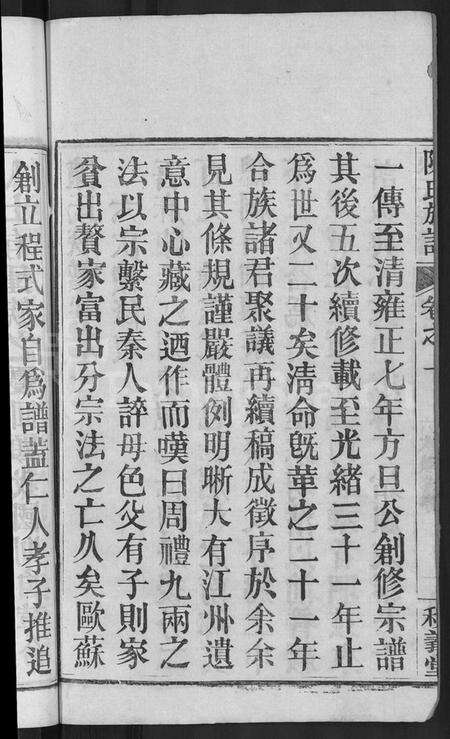 陳氏族譜
卷之一
一傳至清雍正七年方旦公創修宗譜
其後五次續修載至光緒三十一年止
爲世又二十矣淸命旣革之二十一年
合族諸君聚議再續稿成徵序於余余
見其條規謹嚴體例明晰大有江州遺
意中心藏之迺作而嘆曰周禮九兩之
法以宗繫民秦人誶母色父有子則家
貧出贅家富出分宗法之亡久矣歐蘇
創立程式家自爲譜蓋仁人孝子推追